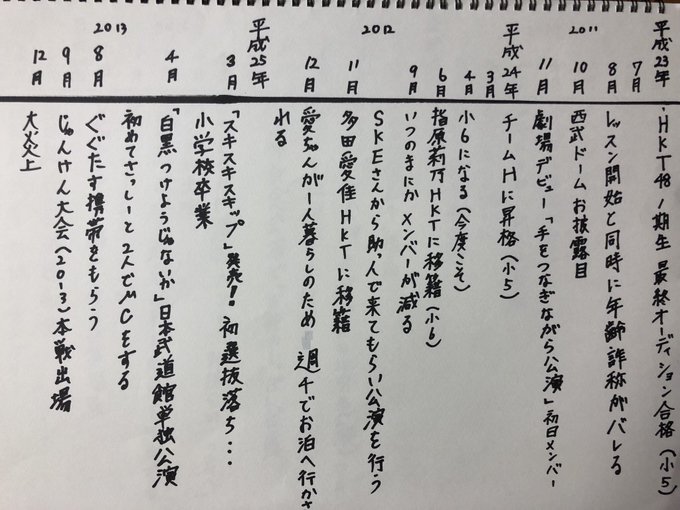 平成23年
2011
7月
・HKT48 1期生 最終オーディション合格(小5)
8月
レッスン開始と同時に年齢詐称がバレる
10月
西武ドームお披露目
11月
劇場デビュー「手をつなぎながら公演」初日メンバー
平成24年
2012
3月
チームHに昇格(小5)
4月
小6になる(今度こそ)
6月
指原莉乃HKTに移籍(小6)
9月
いつのまにかメンバーが減る
SKEさんから助っ人で来てもらい公演を行う
11月
多田愛佳HKTに移籍
12月
愛ちゃんが1人暮らしのため 週4でお泊へ行かさ
れる
平成25年
2013
3月
「スキスキスキップ」発売!初選抜落ち…
小学校卒業
4月
「白黒つけようじゃないか」日本武道館単独公演
初めてさっしーと2人でMCをする
8月
ぐぐたす携帯をもらう
9月
じゃんけん大会(2013)本戦出場
12月
大炎上